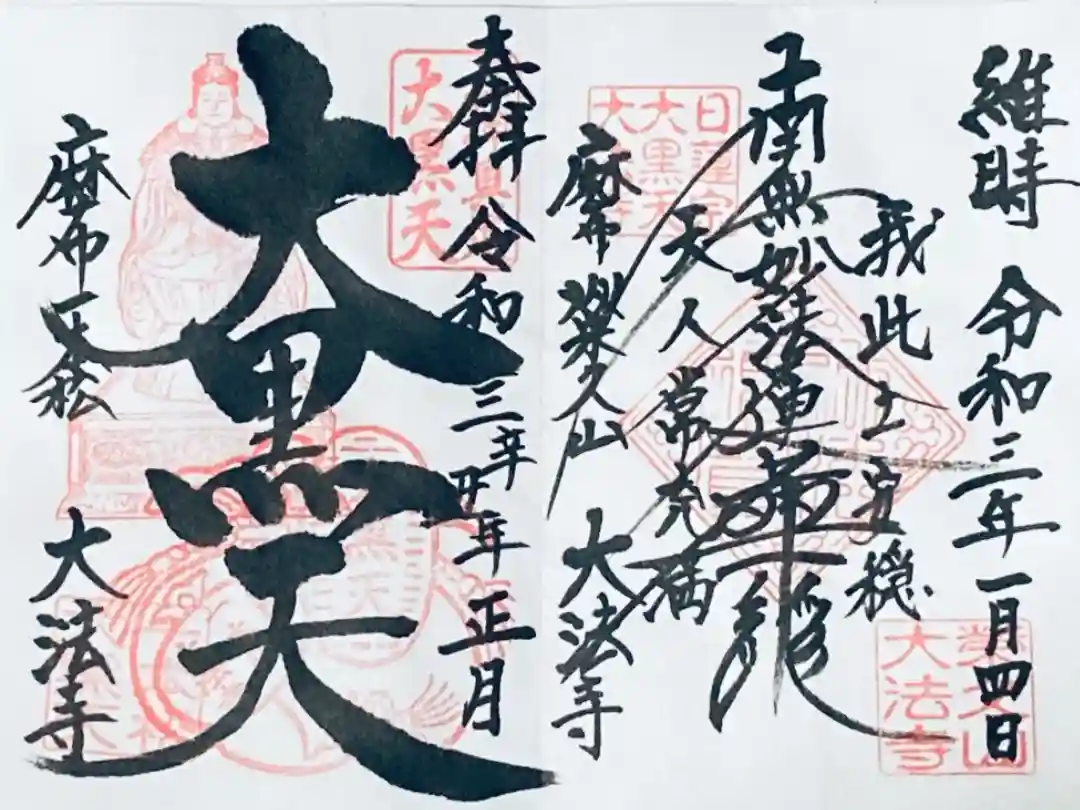 維時 令和三年一月四日
我此土安穏
南無妙法蓮華経
天人常充満
麻布 楽久山 大法寺
奉拝 令和三年 丑年 正月
大黒天
麻布 一本松 大法寺
日蓮宗
大黒天
大黒天
楽久山
大法寺